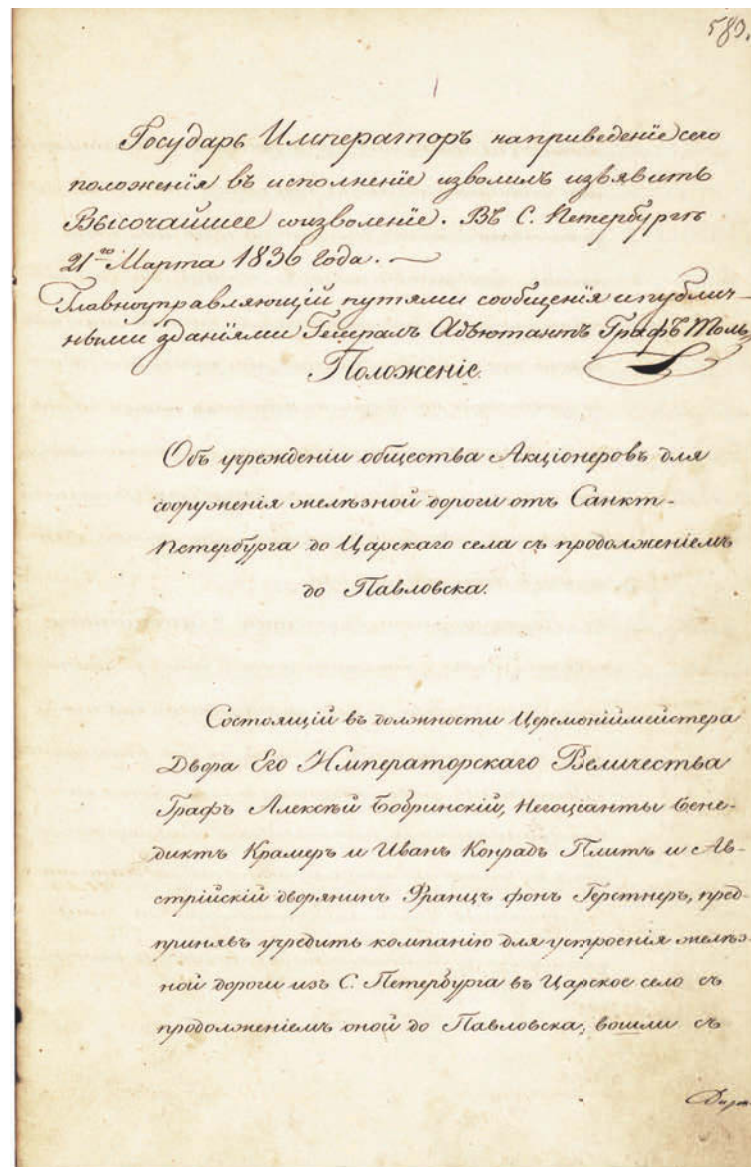 583.
Государь Императоръ на приведеніе сего
положенія въ исполненіе изволилъ изъявить
Высочайшее соизволеніе. Въ С. Петербургѣ
21го Марта 1836 года.
Главноуправляющій путями сообщенія и публич-
ными зданіями Генералъ Адъютантъ Графъ Толь
Положеніе.
Объ учрежденіи общества Акціонеровъ для
сооруженія желѣзной дороги отъ Санкт-
Петербурга до Царскаго села съ продолженіемъ
до Павловска.
Состоящій въ должности Церемоніймейстера
Двора Его Императорскаго Величества
Графъ Алексѣй Бобринскій, Негоціанты Бене-
диктъ Крамеръ и Иванъ Конрадъ Плитъ и Ав-
стрійскій дворянинъ Францъ фонъ Герстнеръ, пред-
принявъ учредить компанію для устроенія желѣз-
ной дороги изъ С. Петербурга въ Царское село съ
продолженіемъ оной до Павловска, вошли съ